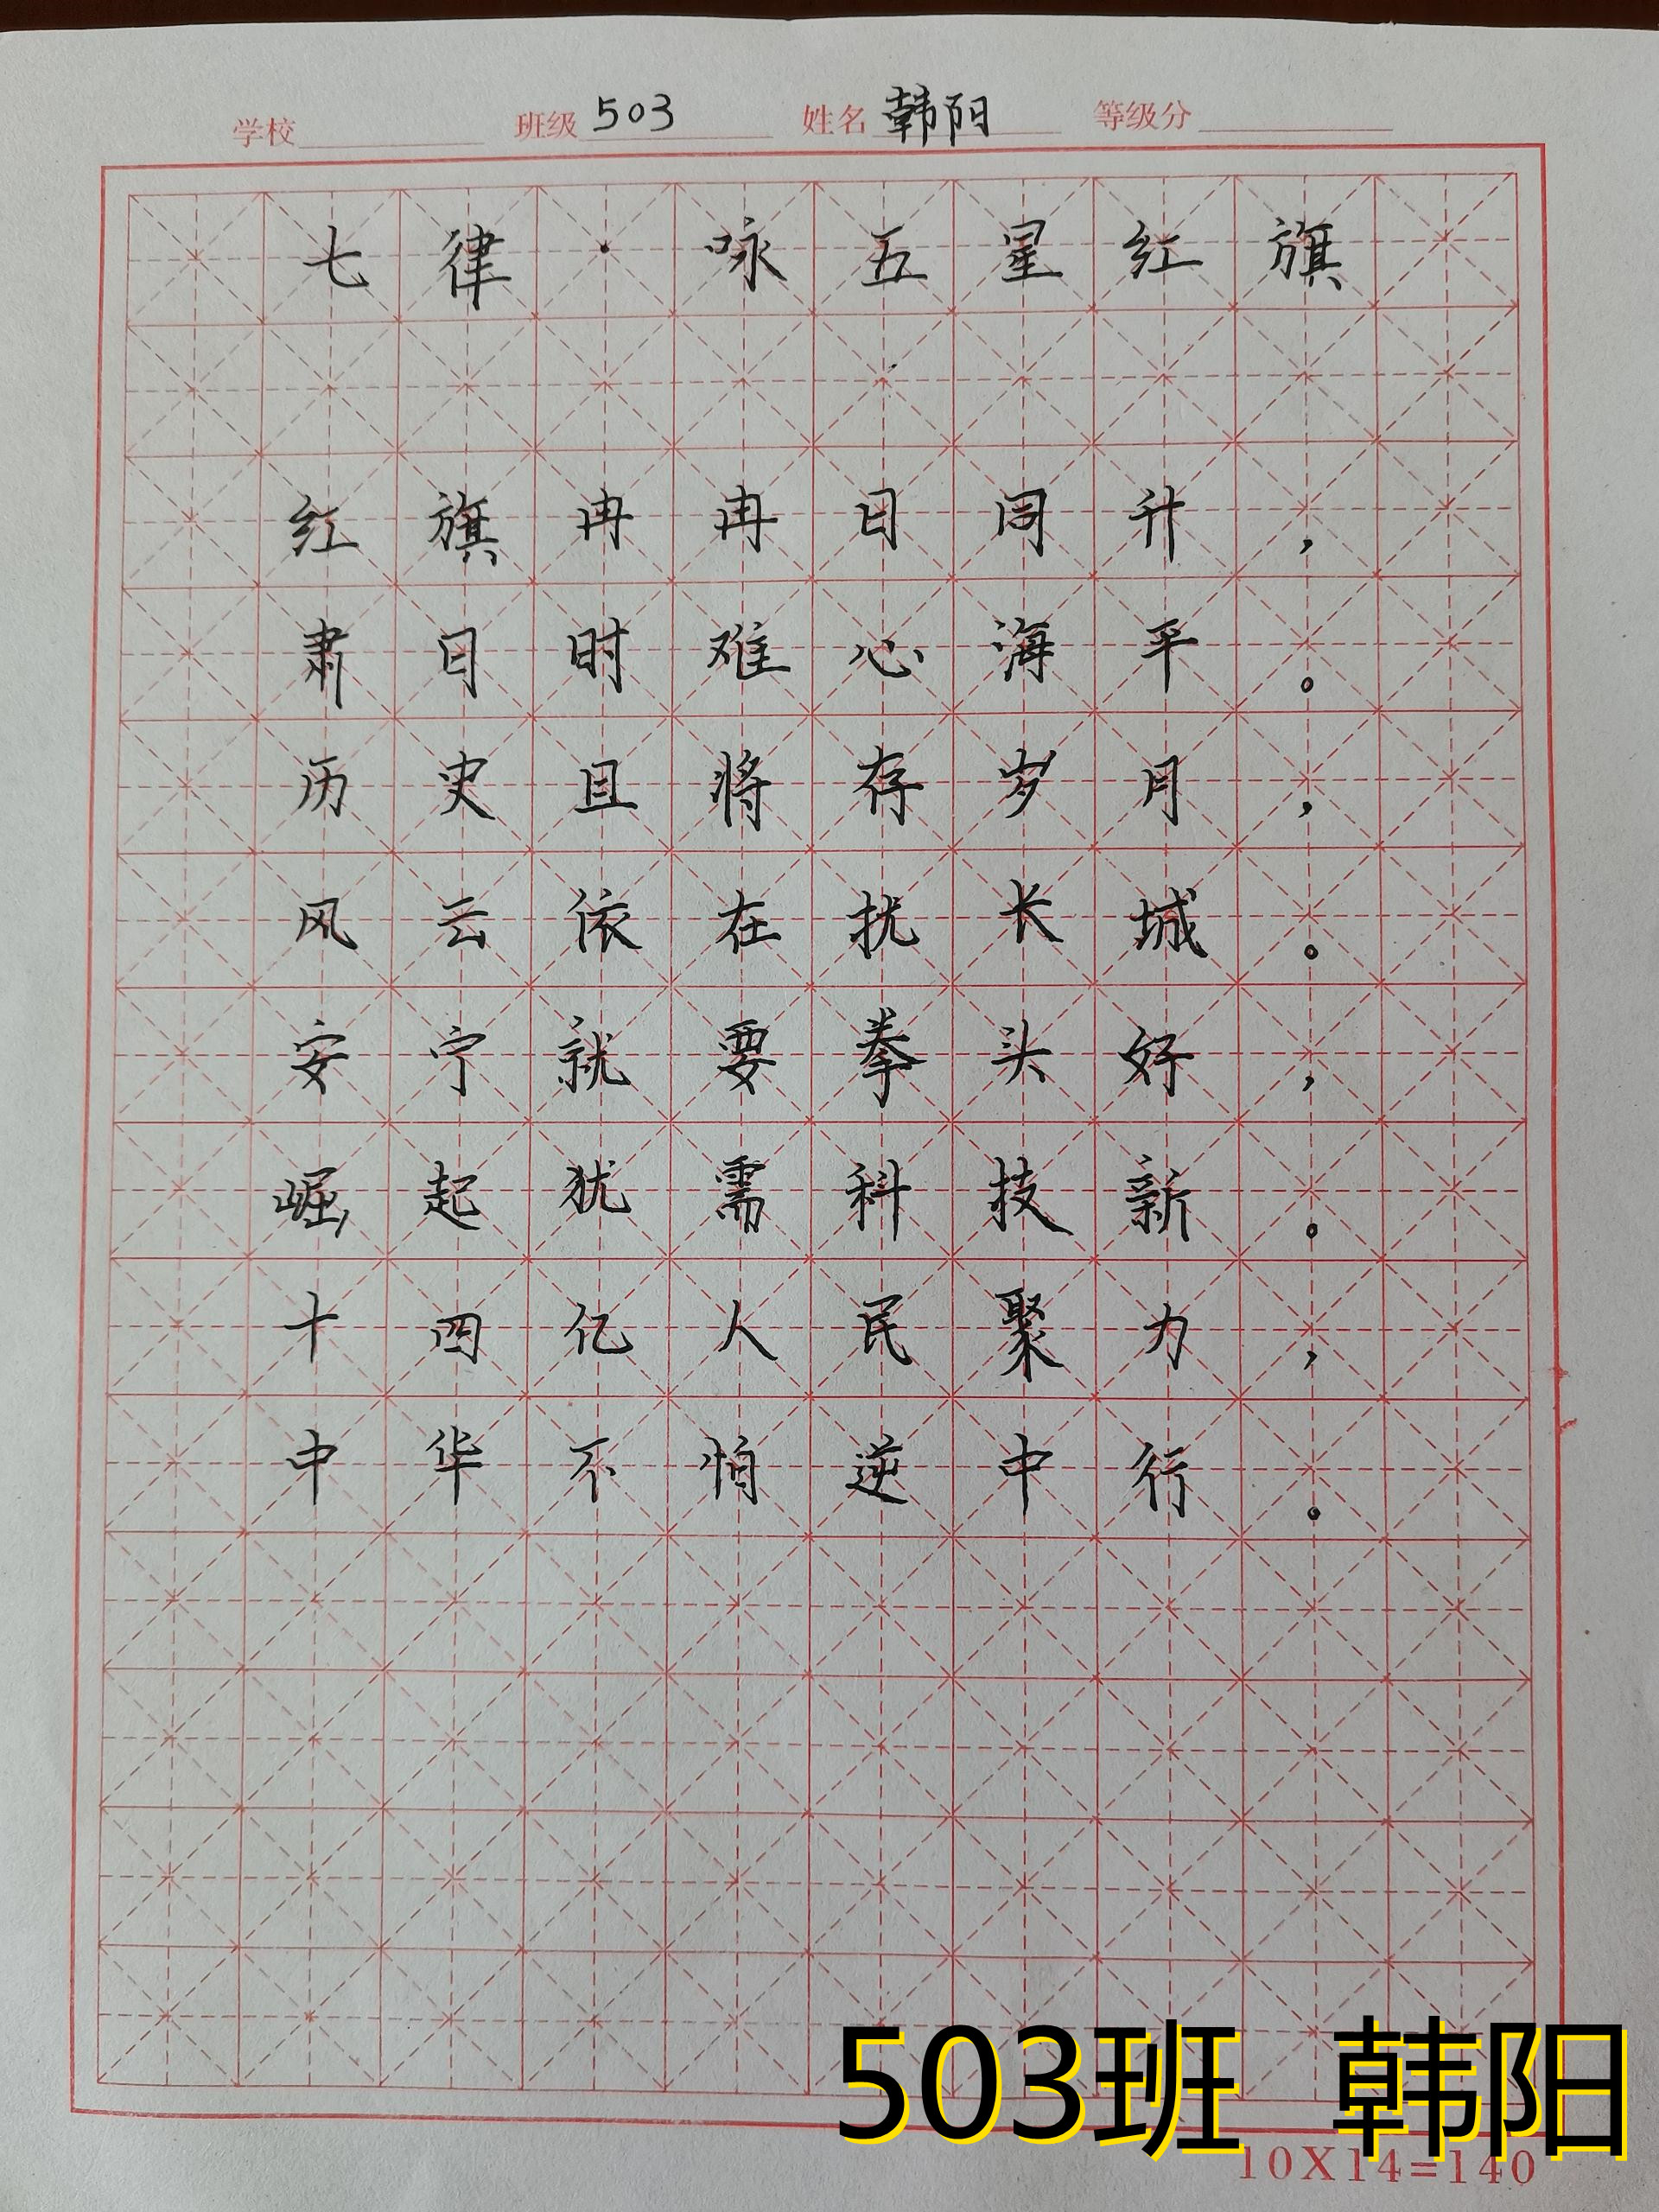 学校 班级 503 姓名 韩阳 等级分
七律·咏五星红旗
红旗冉冉日同升，
肃日时难心海平。
历史且将存岁月，
风云依在扰长城。
安宁就要拳头好，
崛起犹需科技新。
十四亿人民聚力，
中华不怕逆中行。
503班 韩阳
10X14=140